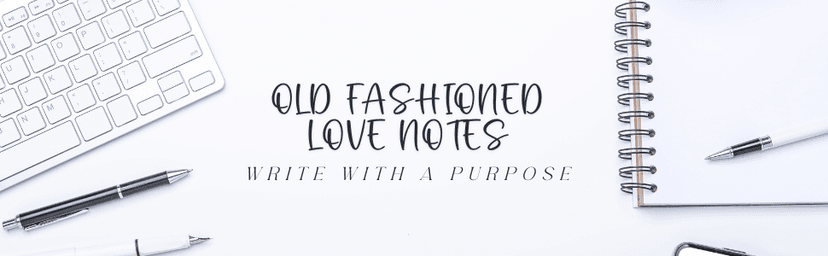 OLD FASHIONED
LOVE NOTES
WRITE WITH A PURPOSE